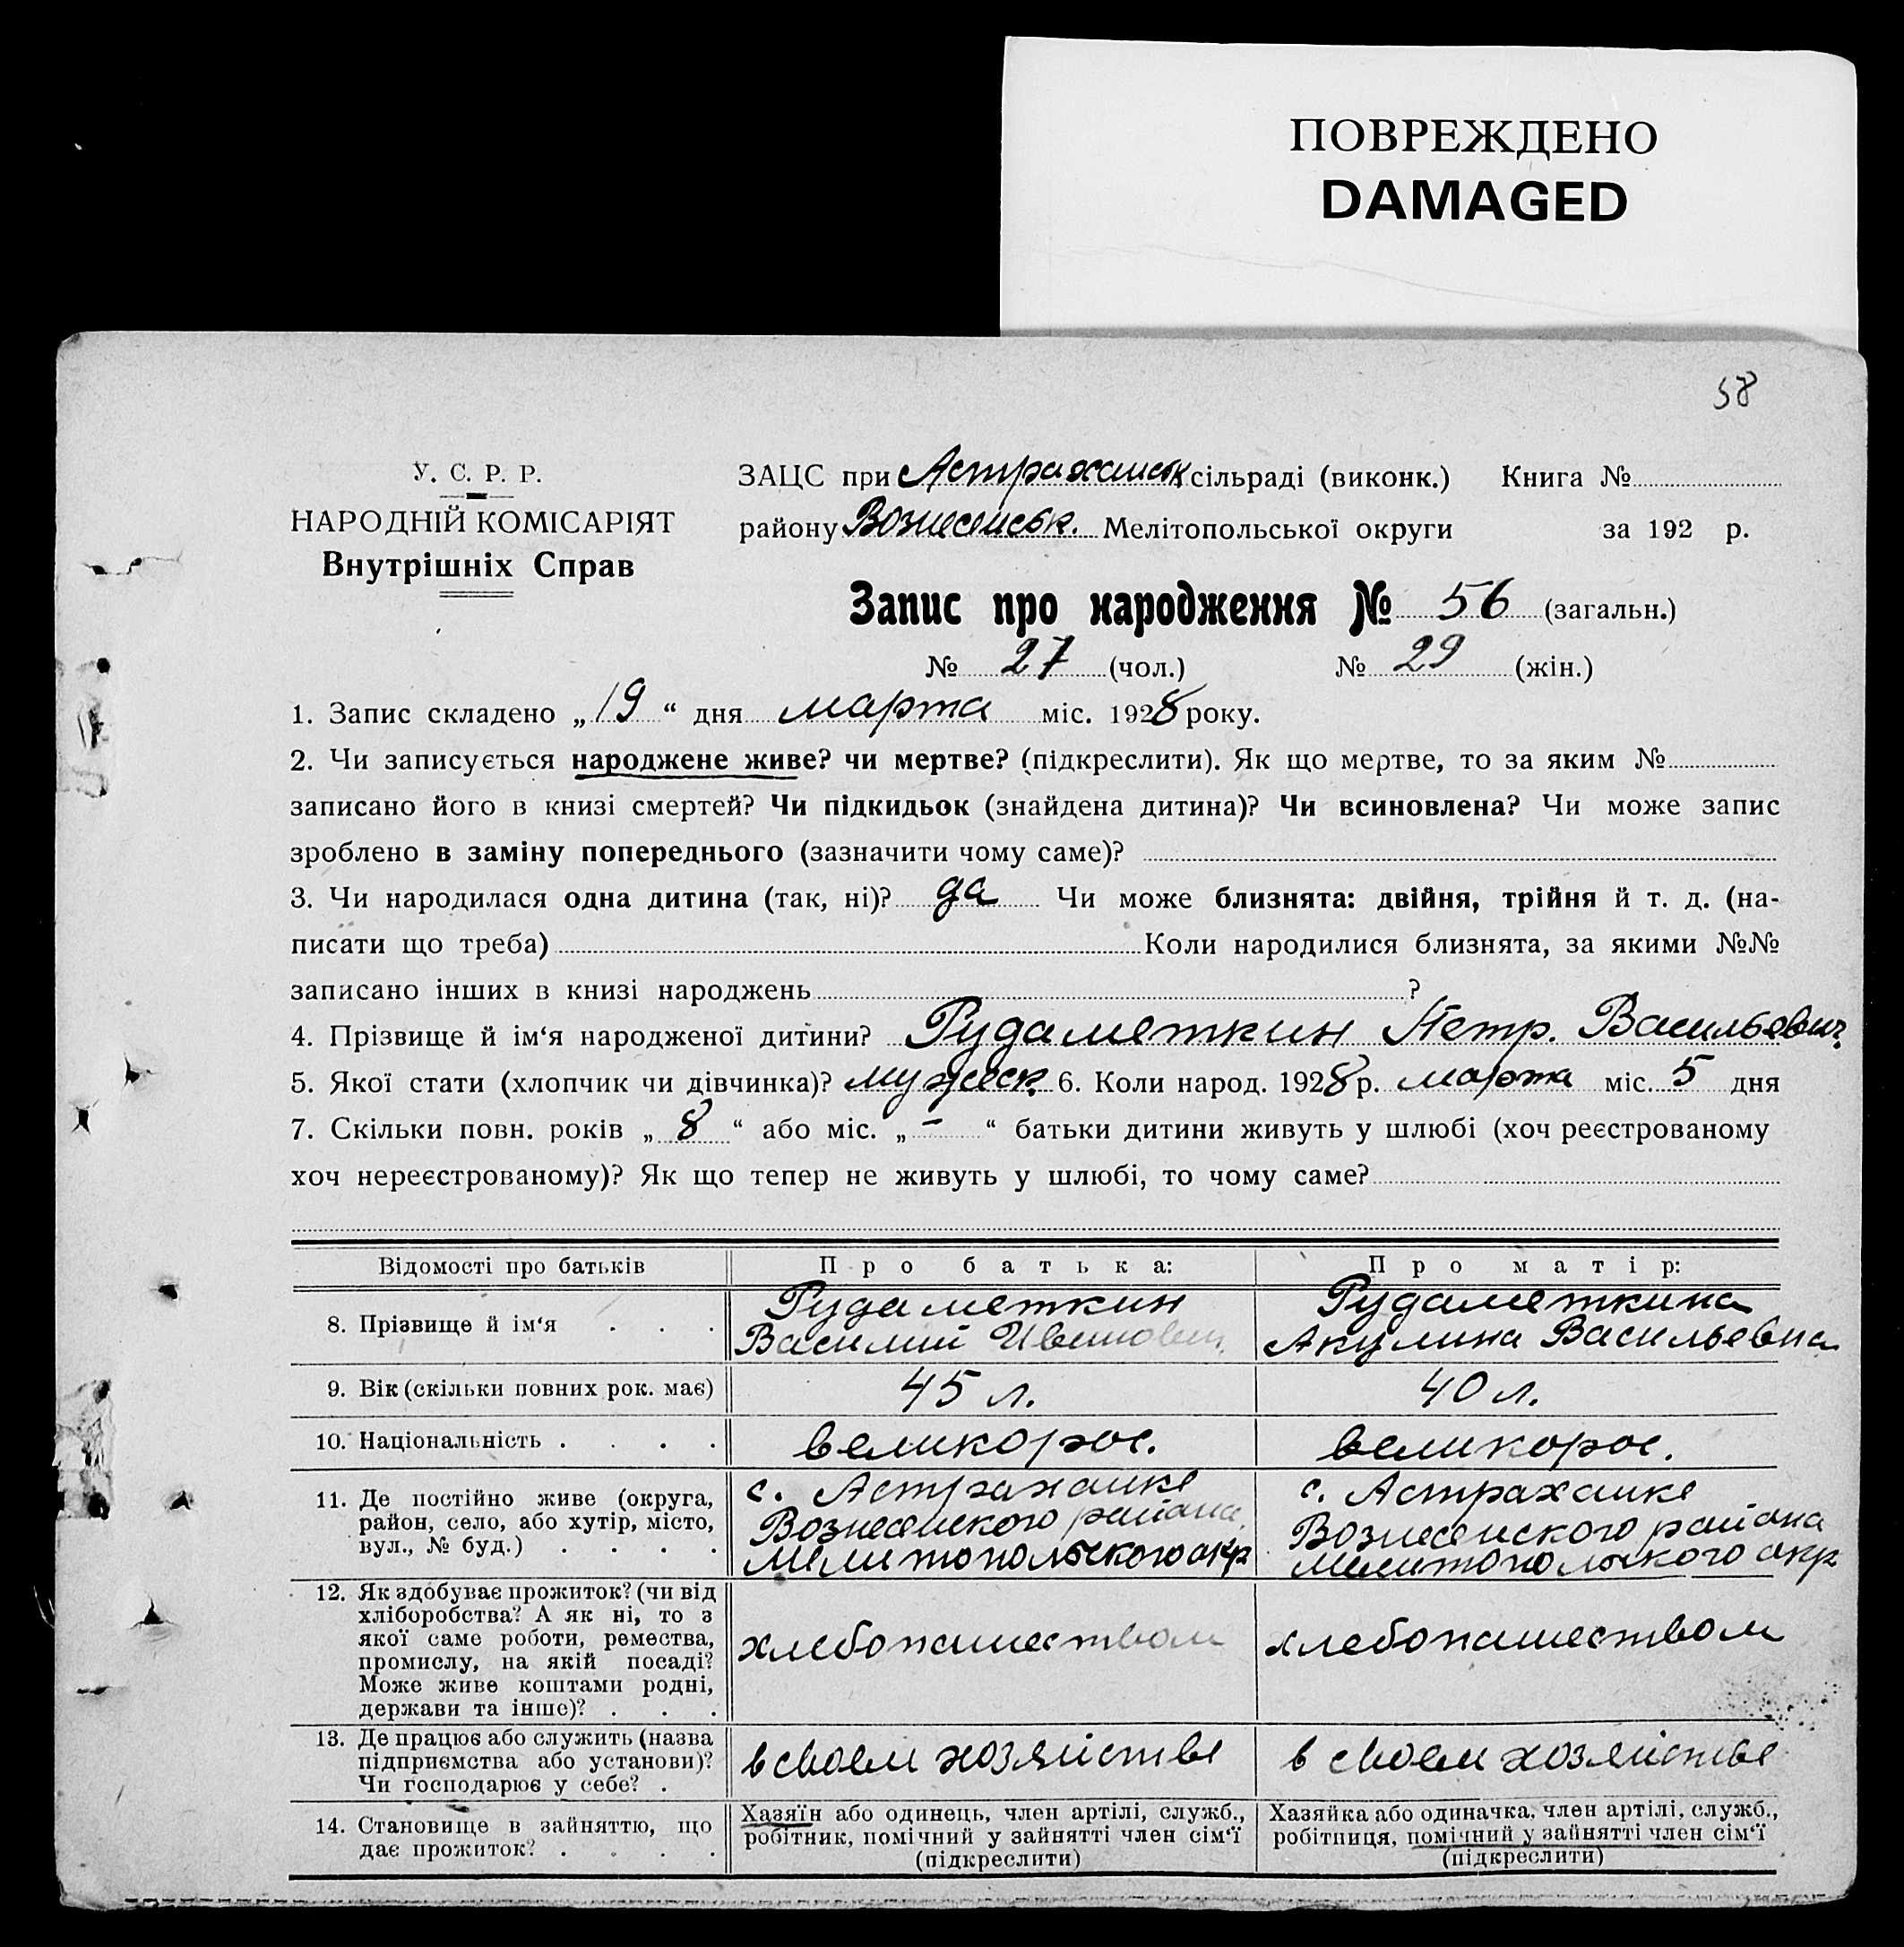 ПОВРЕЖДЕНО
DAMAGED
58
У. С. Р. Р.
НАРОДНІЙ КОМІСАРІЯТ
Внутрішніх Справ
ЗАЦС при Астраханськ сільраді (виконк.) Книга №
району Вознесенськ. Мелітопольської округи за 192 р.
Запис про народження № 56 (загальн.)
№ 27 (чол.) № 29 (жін.)
1. Запис складено „19“ дня марта міс. 1928 року.
2. Чи записується народжене живе? чи мертве? (підкреслити). Як що мертве, то за яким №
записано його в книзі смертей? Чи підкидьок (знайдена дитина)? Чи всиновлена? Чи може запис
зроблено в заміну попереднього (зазначити чому саме)?
3. Чи народилася одна дитина (так, ні)? да Чи може близнята: двійня, трійня й т. д. (на-
писати що треба) Коли народилися близнята, за якими №№
записано інших в книзі народжень ?
4. Прізвище й ім‘я народженої дитини? Рудаметкин Петр. Васильевич.
5. Якої стати (хлопчик чи дівчинка)? мужеск. 6. Коли народ. 1928 р. марта міс. 5 дня
7. Скільки повн. років „8“ або міс. „-“ батьки дитини живуть у шлюбі (хоч реєстрованому
хоч нереєстрованому)? Як що тепер не живуть у шлюбі, то чому саме?
Відомості про батьків Про батька: Про матір:
8. Прізвище й ім‘я . . .
Рудаметкин
Василий
Рудаметкина
Акулина Васильевна
9. Вік (скільки повних рок. має) 45 л. 40 л.
10. Національність . . . . великорос. великорос.
11. Де постійно живе (округа,
район, село, або хутір, місто,
вул., № буд.) . . . .
с. Астраханке
Вознесенского района
Мелитопольского окр
с. Астраханке
Вознесенского района
Мелитопольского окр
12. Як здобуває прожиток? (чи від
хліборобства? А як ні, то з
якої саме роботи, ремества,
промислу, на якій посаді?
Може живе коштами родні,
держави та інше)? . . .
хлебопашеством
хлебопашеством
13. Де працює або служить (назва
підприємства або установи)?
Чи господарює у себе? .
в своем хозяйстве
в своем хозяйстве
14. Становище в зайняттю, що
дає прожиток? . . . .
Хазяїн або одинець, член артілі, служб.,
робітник, помічний у зайнятті член сім‘ї
(підкреслити)
Хазяйка або одиначка, член артілі, служб.,
робітниця, помічний у зайнятті член сім‘ї
(підкреслити)